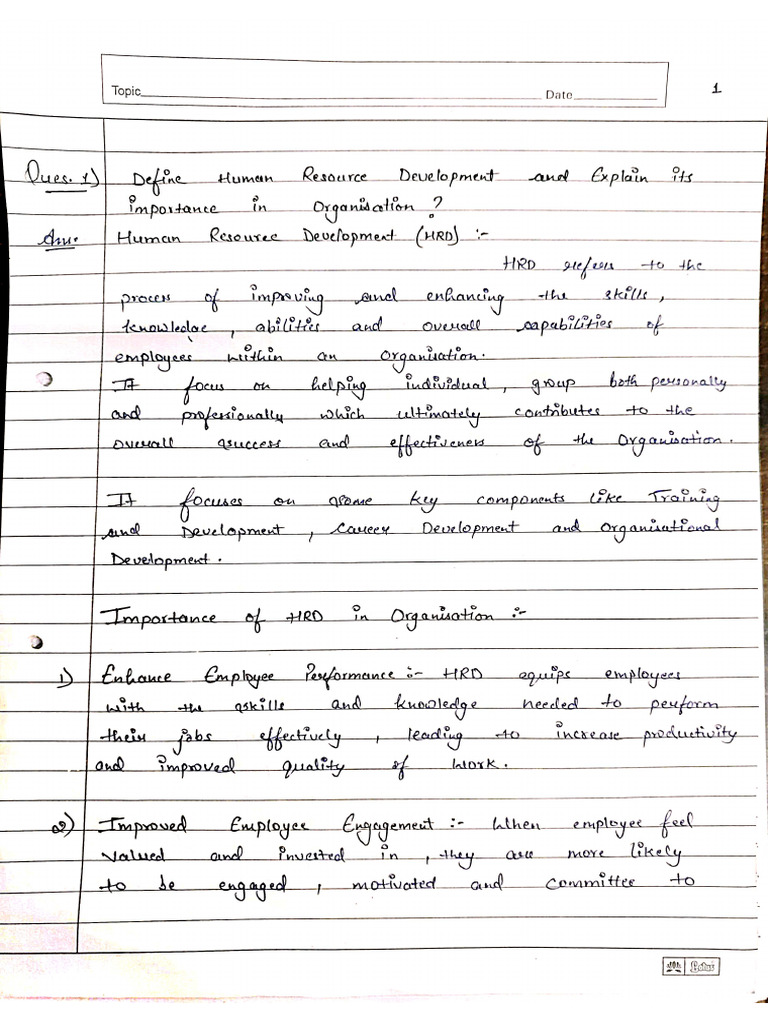 Topic Date 1
Ques. 1) Define Human Resource Development and Explain its
importance in Organisation ?
Ans. Human Resource Development (HRD) :-
HRD refers to the
process of improving and enhancing the skills,
knowledge, abilities and overall capabilities of
employees within an Organisation.
It focus on helping individual, group both personally
and professionally which ultimately contributes to the
overall success and effectiveness of the Organisation.
It focuses on some key components like Training
and Development, Career Development and Organisational
Development.
Importance of HRD in Organisation :-
1) Enhance Employee Performance :- HRD equips employees
with the skills and knowledge needed to perform
their jobs effectively, leading to increase productivity
and improved quality of work.
2) Improved Employee Engagement :- When employee feel
valued and invested in, they are more likely
to be engaged, motivated and committee to
Lotus